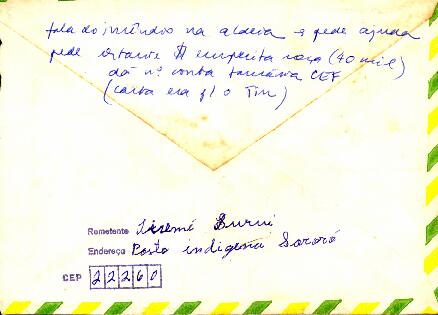 fala do incêndio na aldeia e pede ajuda
pede restante $ empreita roça (40 mil)
dá nº conta bancária CEF
(carta era p/ o Tim)
Remetente Suruí
Endereço Posto indigena Sororó
CEP 22260